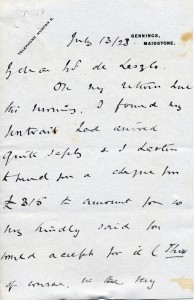 TELEPHONE, HUNTON 6.
GENNINGS,
MAIDSTONE.
July 13/23.
My dear Mr de Laszlo.
On my return here
this morning, I found my
portrait had arrived
quite safely & I hasten
to send you a cheque for
£315 the amount you so
very kindly said you
would accept for it (This
of course, is the very